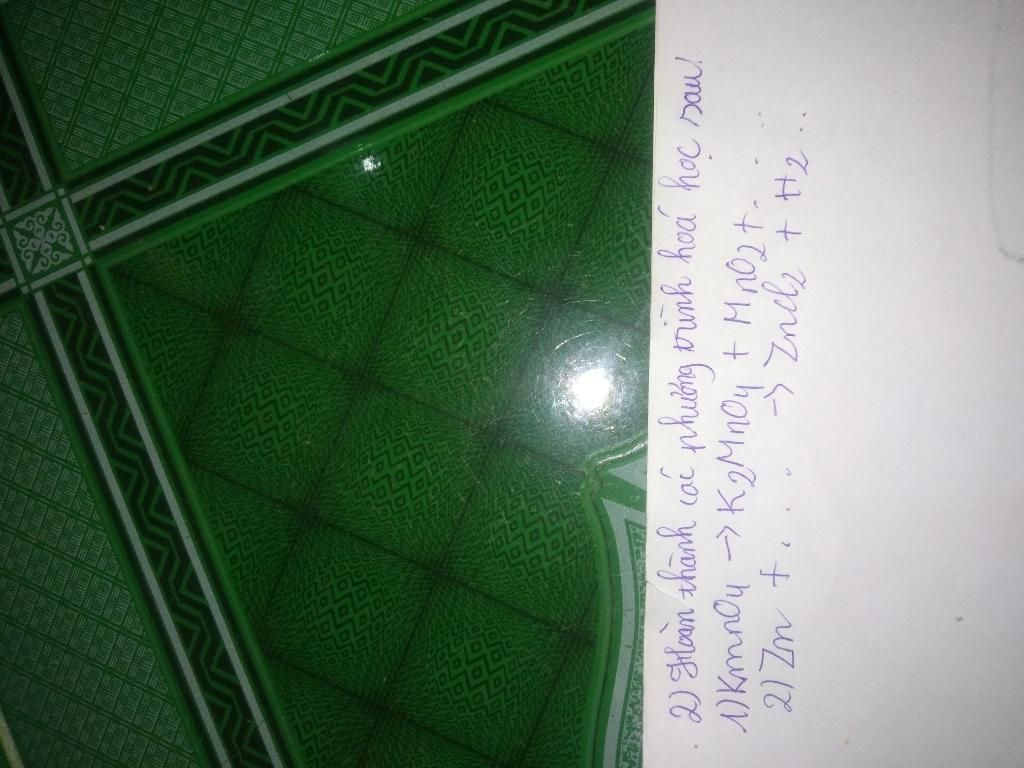 2) Hoàn thành các phương trình hoá học sau!
1) KmnO4 -> K2MnO4 + MnO2 + ...
2) Zn + .... -> ZnCl2 + H2 ..